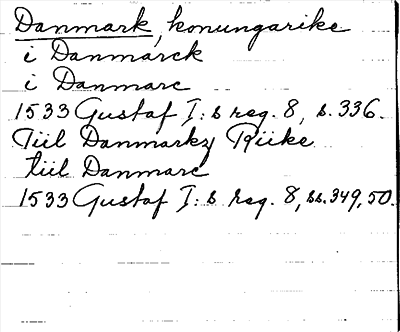 Danmark, konungarike
i Danmarck
i Danmarc
1533 Gustaf I:s reg. 8, s. 336.
Tiil Danmarkz Riike
tiil Danmarc
1533 Gustaf I:s reg. 8, ss. 349, 50.